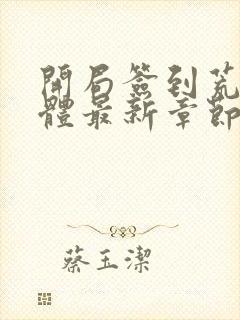 開局簽到荒
體最新章節
蔡玉潔